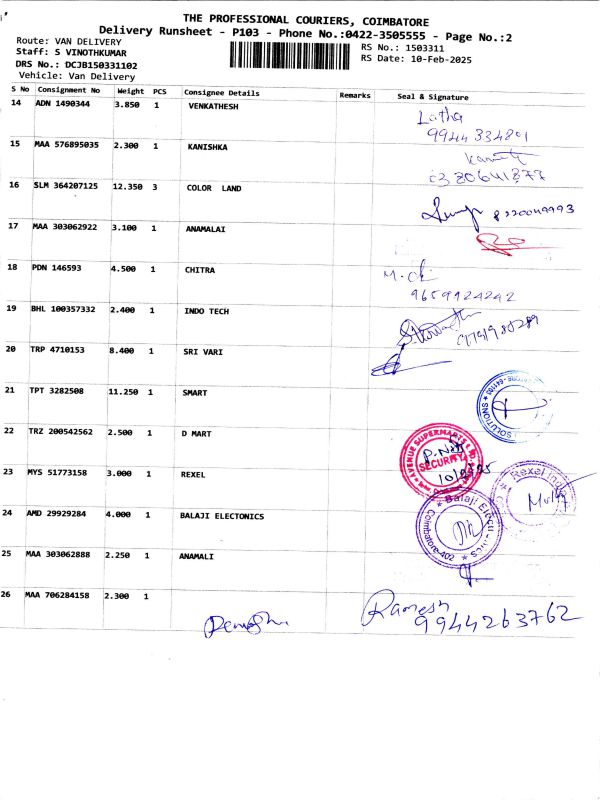 THE PROFESSIONAL COURIERS, COIMBATORE
Delivery Runsheet - P103 - Phone No.:0422-3505555 - Page No.:2
Route: VAN DELIVERY
RS No.: 1503311
Staff: S VINOTHKUMAR
RS Date: 10-Feb-2025
DRS No.: DCJB150331102
Vehicle: Van Delivery
S No Consignment No Weight PCS Consignee Details Remarks Seal & Signature
14 ADN 1490344 3.850 1 VENKATHESH
Latha
9944334801
15 MAA 576895035 2.300 1 KANISHKA
16 SLM 364207125 12.350 3 COLOR LAND
17 MAA 303062922 3.100 1 ANAMALAI
18 PDN 146593 4.500 1 CHITRA
9659924242
19 BHL 100357332 2.400 1 INDO TECH
20 TRP 4710153 8.400 1 SRI VARI
21 TPT 3282508 11.250 1 SMART
SOLUTIONS
22 TRZ 200542562 2.500 1 D MART
AVENUE SUPERMARTS
SECURITY
23 MYS 51773158 3.000 1 REXEL
Rexel
24 AMD 29929284 4.000 1 BALAJI ELECTONICS
Balaji
Coimbatore-402
25 MAA 303062888 2.250 1 ANAMALI
26 MAA 706284158 2.300 1
Ramesh
9944263762